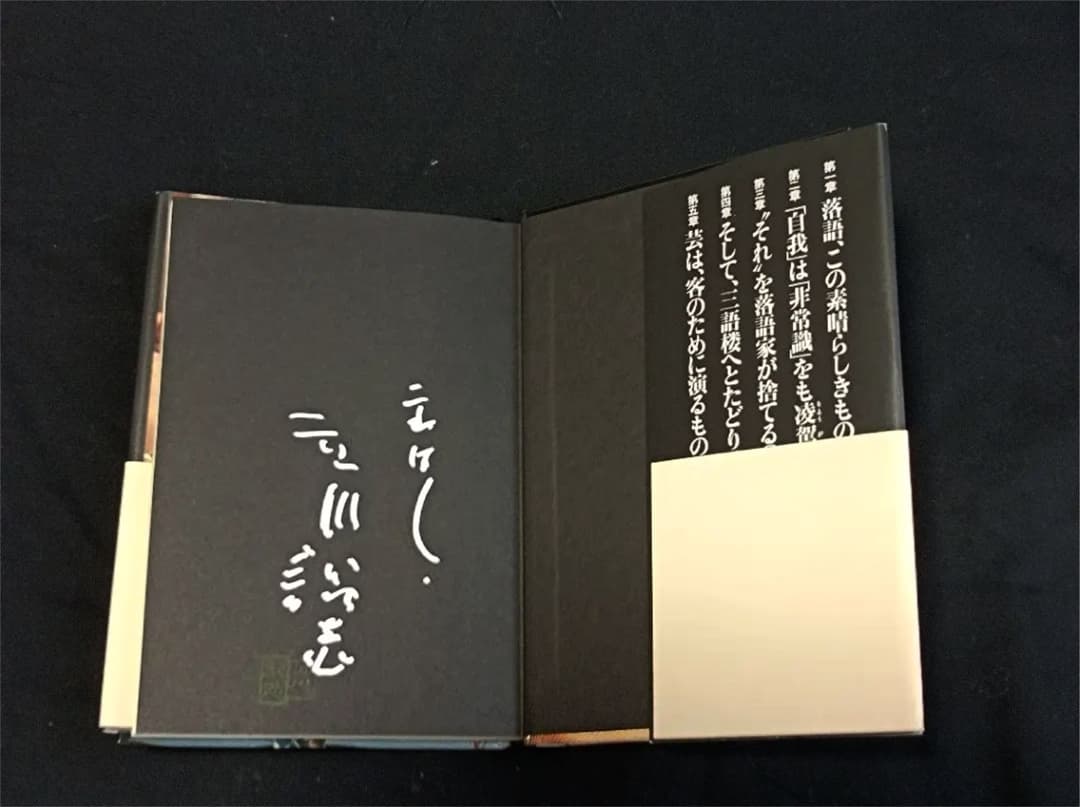 第一章 落語、この素晴らしきもの
第二章 「自我」は「非常識」をも凌駕
第三章 〝それ〟を落語家が捨てる
第四章 そして、三語楼へとたどり
第五章 芸は、客のために演るもの
立川談志